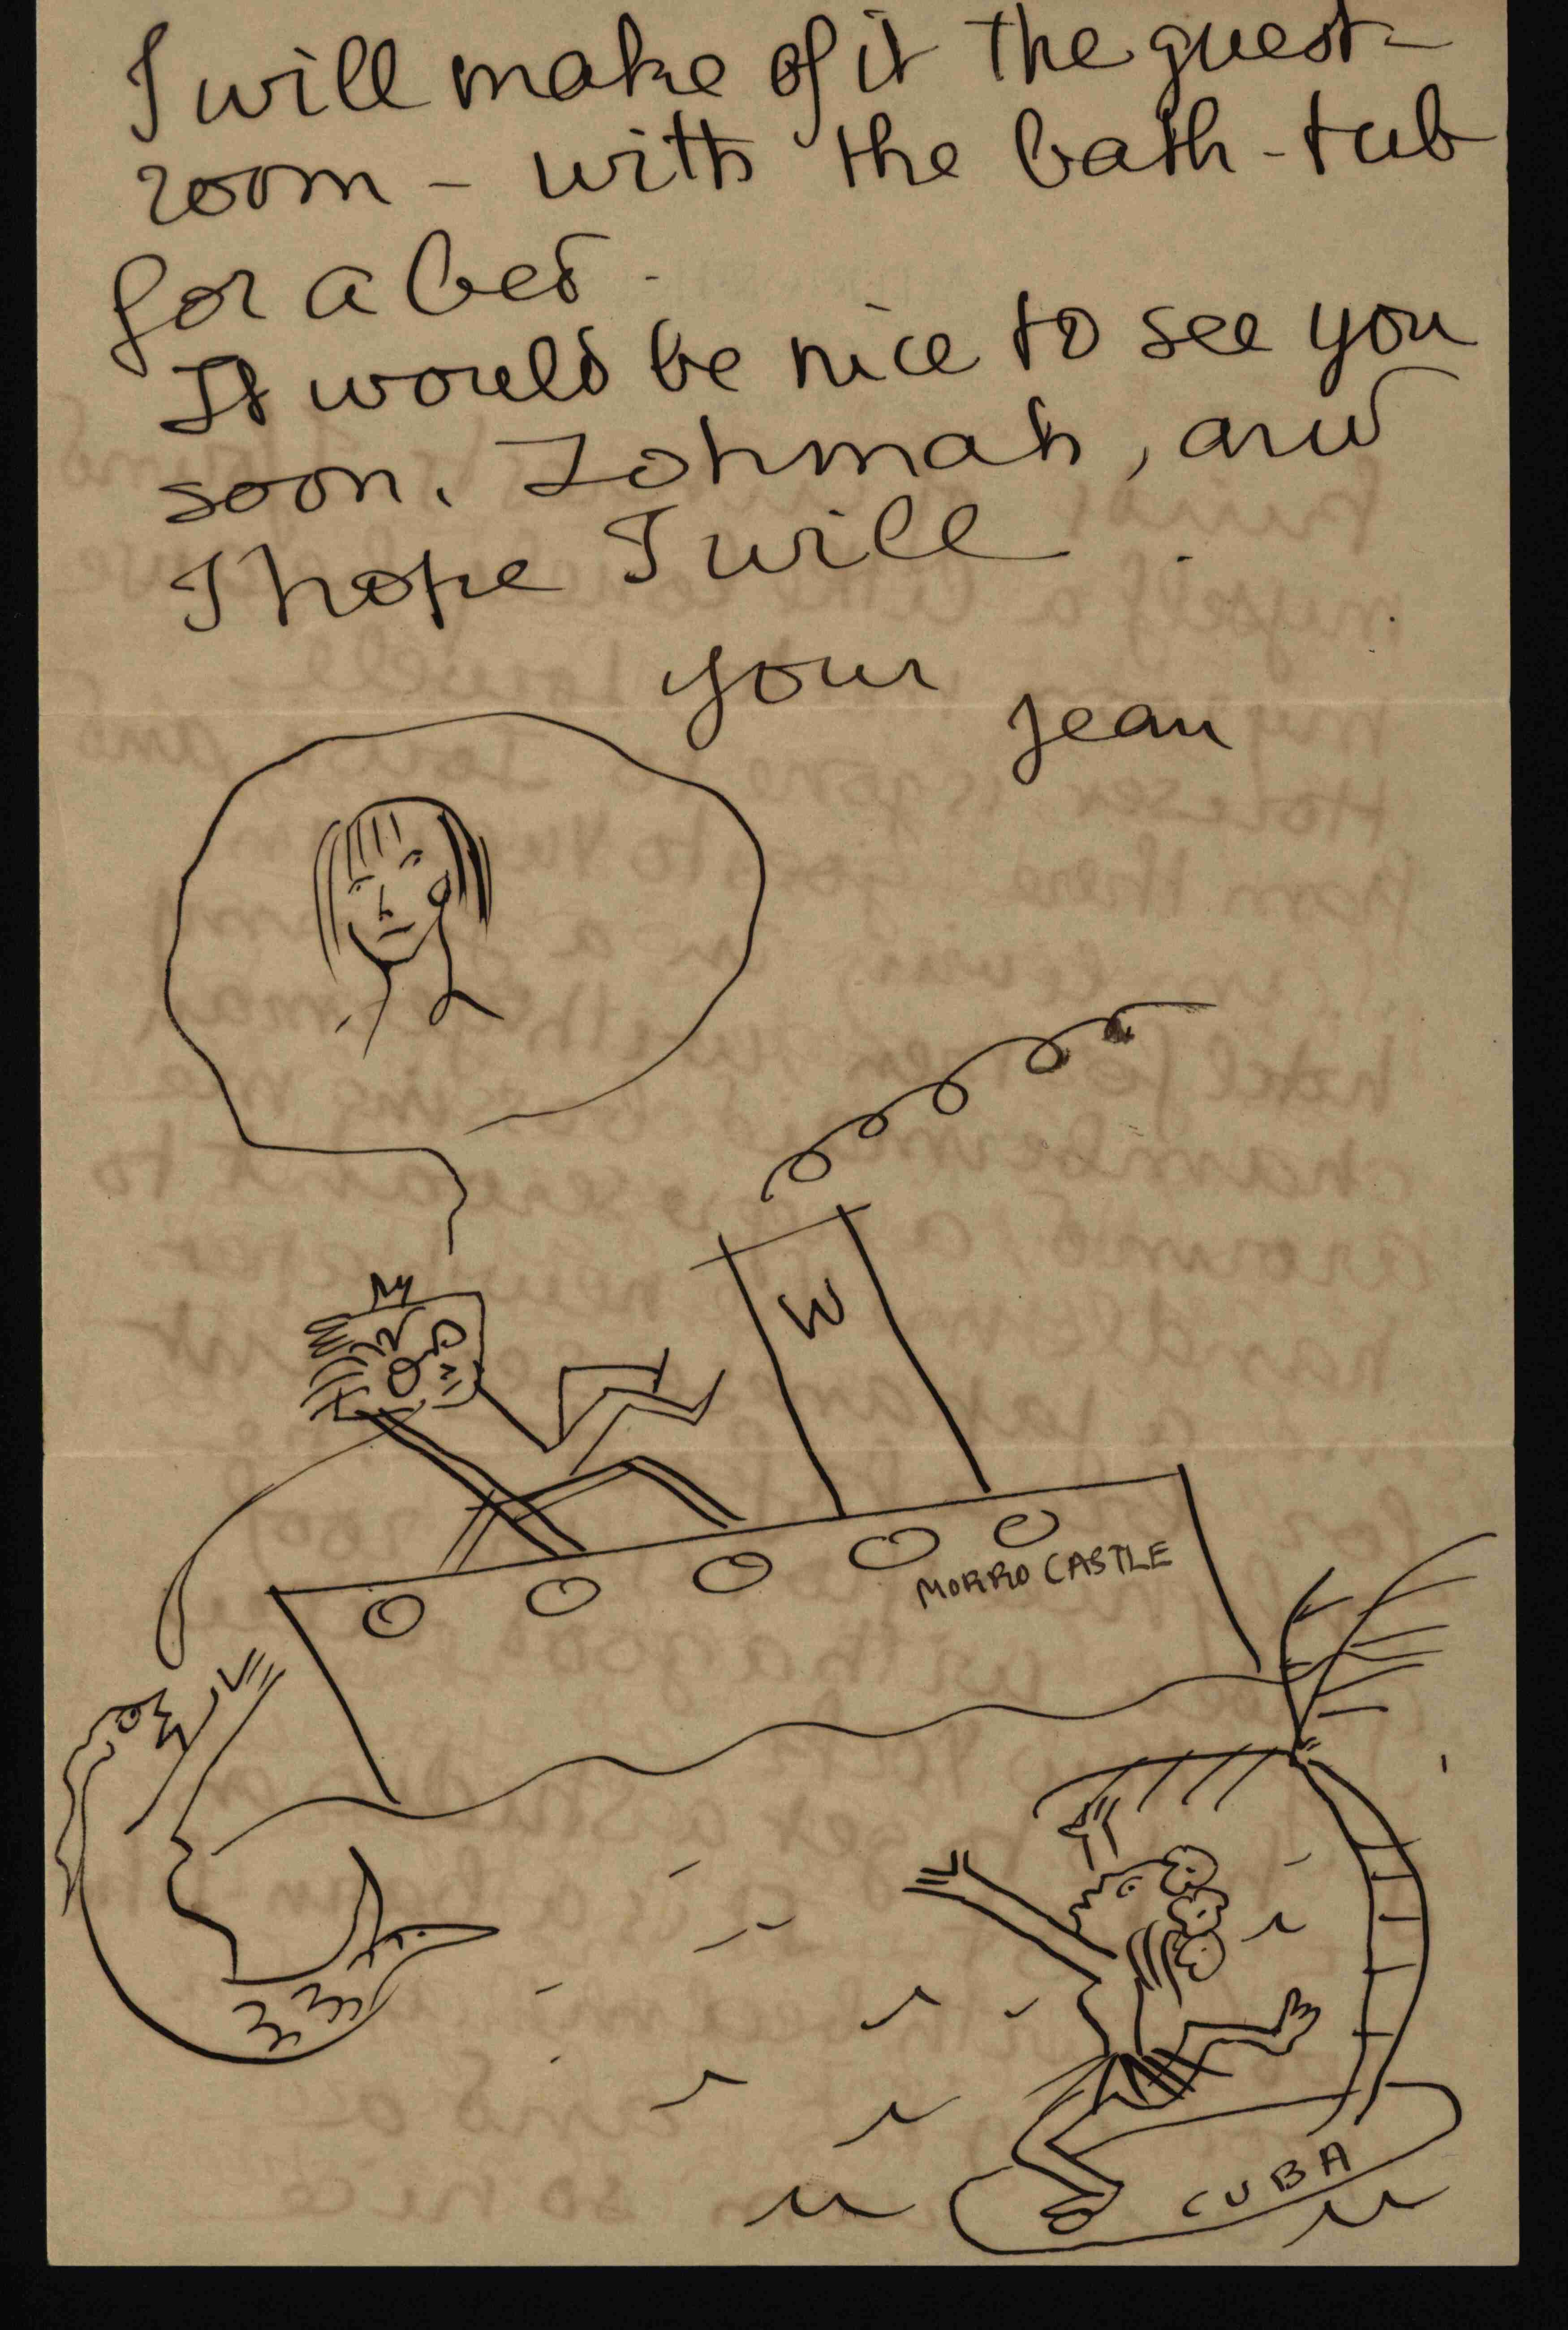 I will make of it the guest-
room - with the bath-tub
for a bed.
It would be nice to see you
soon. Zohmah, and
I hope I will.
your
Jean
W
MORRO CASTLE
CUBA